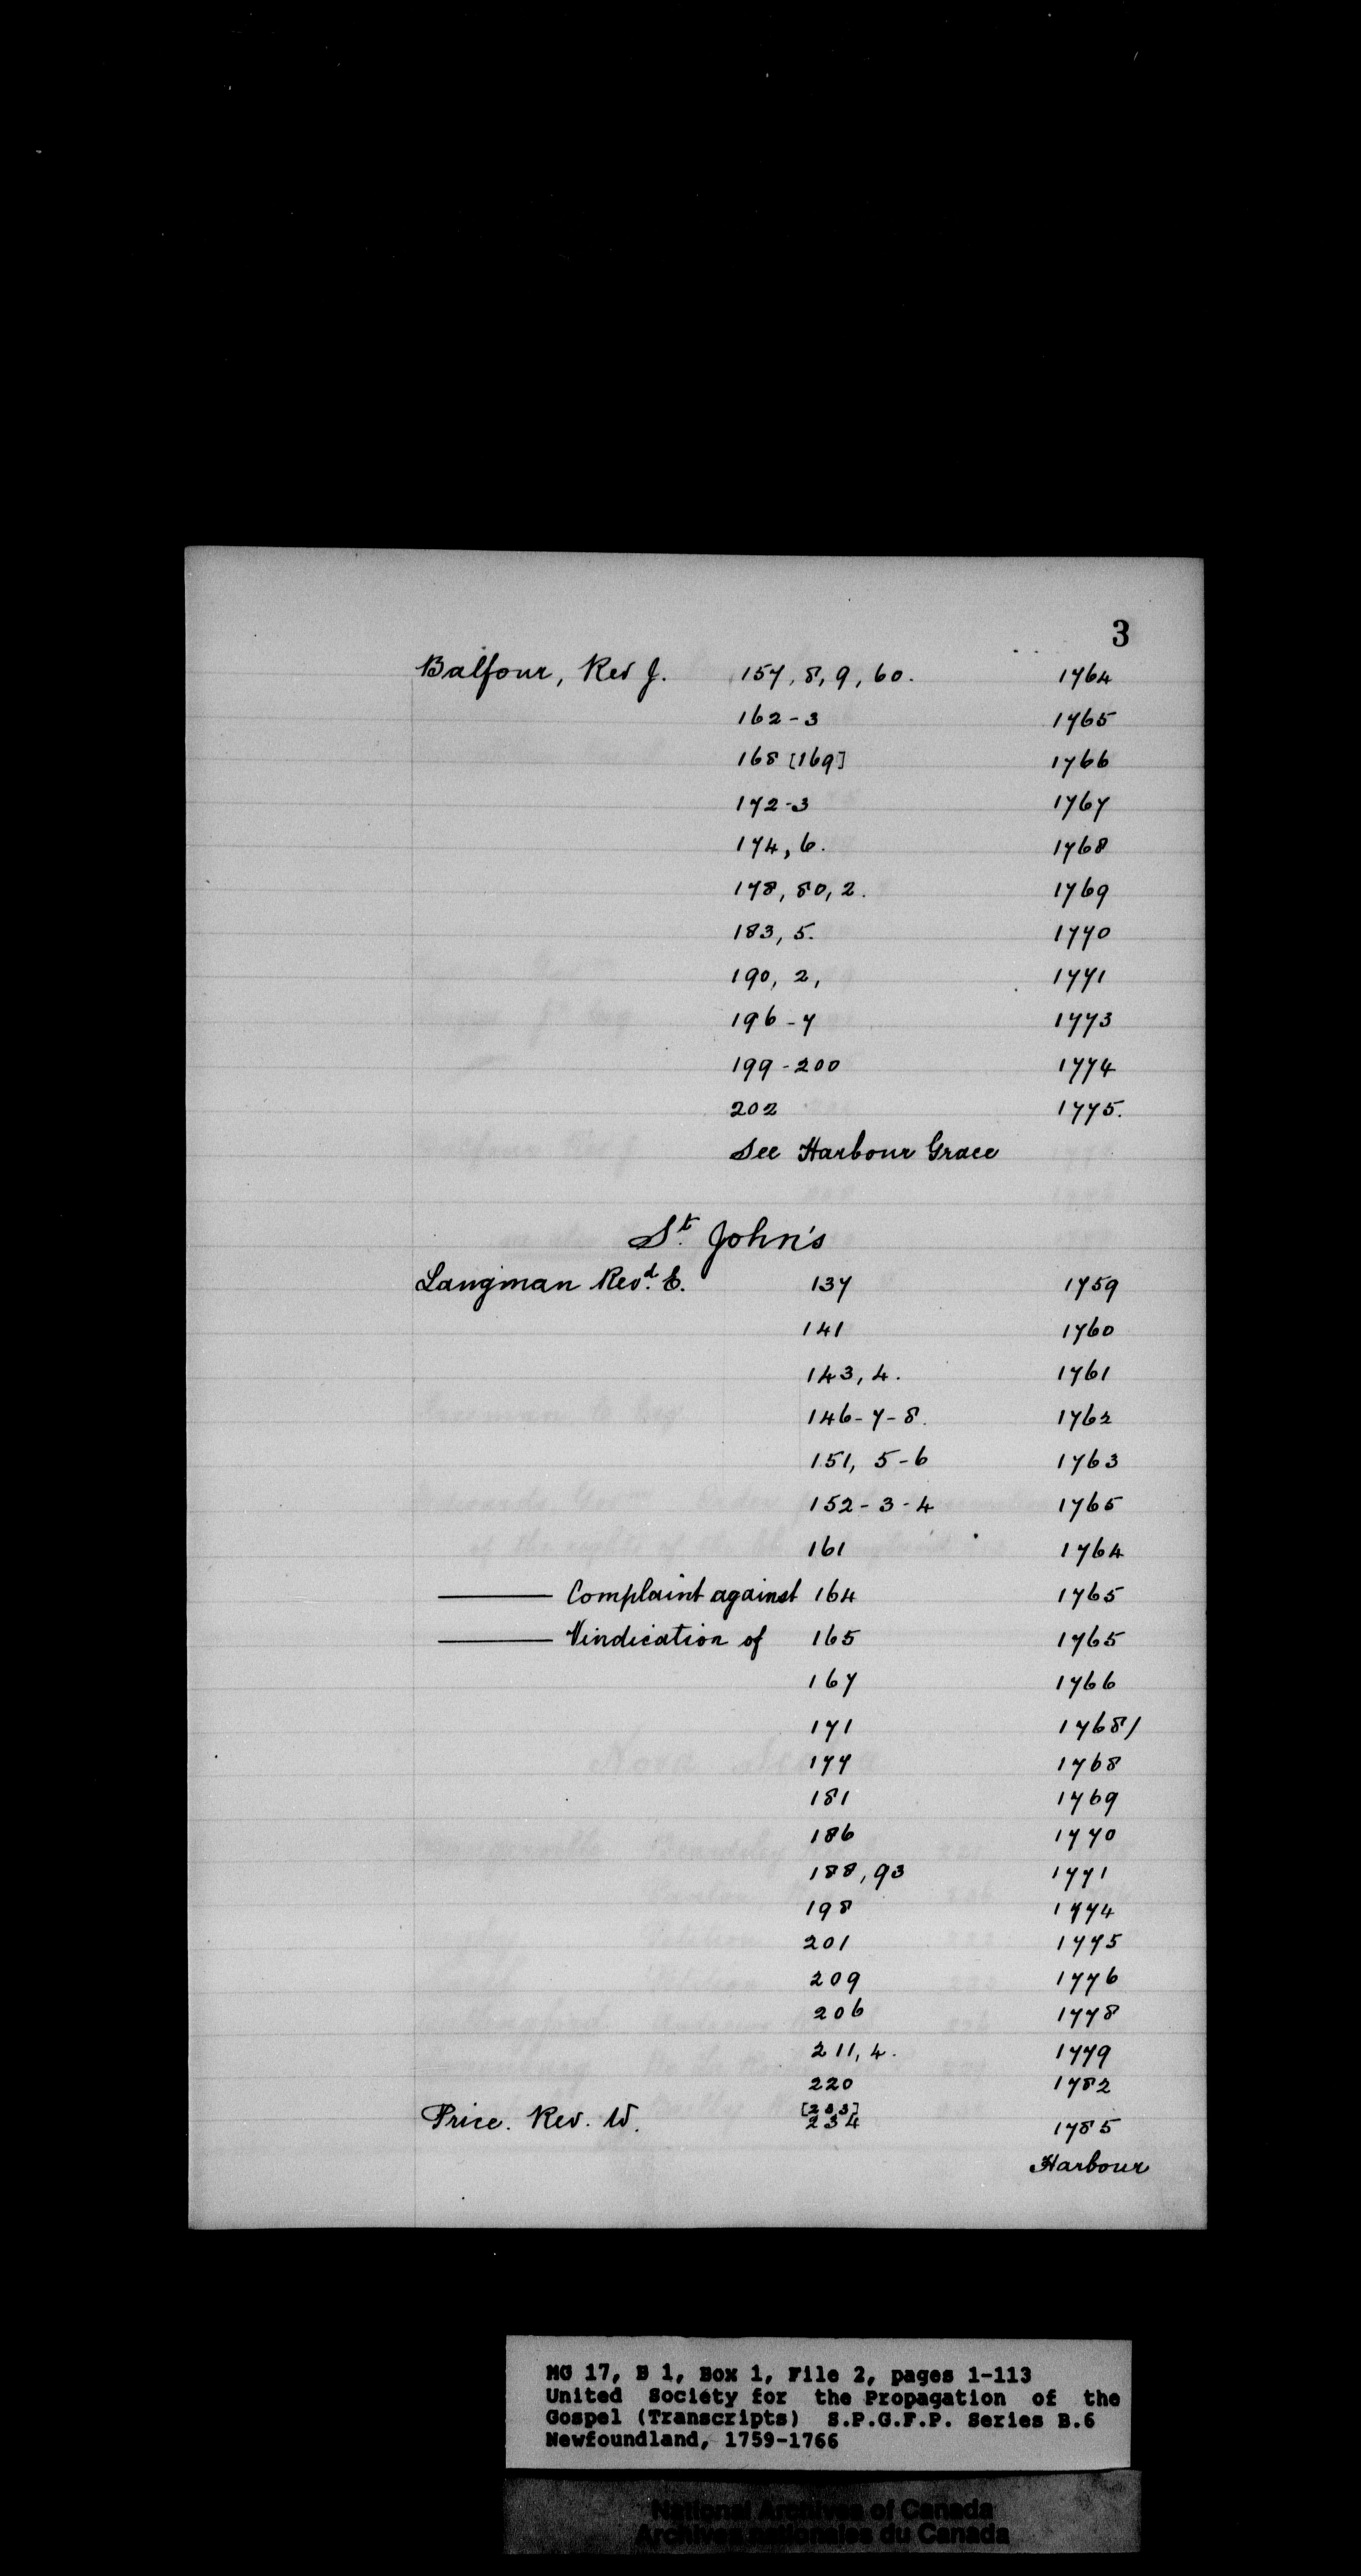 3
Balfour, Rev J. 157, 8, 9, 60. 1764
162-3 1765
168 [169] 1766
172-3 1767
174, 6. 1768
178, 80, 2. 1769
183, 5. 1770
190, 2, 1771
196-7 1773
199-200 1774
202 1775.
See Harbour Grace
St. John's
Langman Revd. E. 137 1759
141 1760
143, 4. 1761
146-7-8. 1762
151, 5-6 1763
152-3-4 1765
161 1764
——— Complaint against 164 1765
——— Vindication of 165 1765
167 1766
171 1768/
177 1768
181 1769
186 1770
188, 93 1771
198 1774
201 1775
209 1776
206 1778
211, 4. 1779
220 1782
[233]
Price. Rev. W. 234 1785
Harbour
MG 17, B 1, Box 1, File 2, pages 1-113
United Society for the Propagation of the
Gospel (Transcripts) S.P.G.F.P. Series B.6
Newfoundland, 1759-1766
National Archives of Canada
Archives nationales du Canada